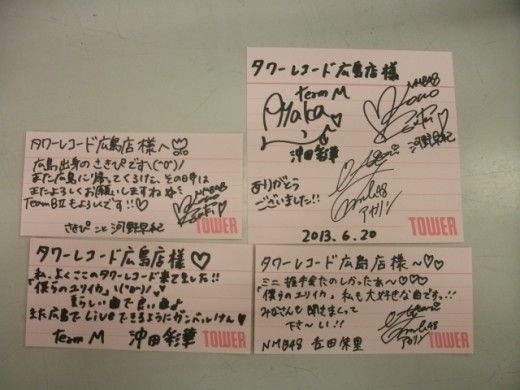 タワーレコード広島店様へ♡
広島出身のさきぴです\(^o^)/
また広島に帰ってくるけえ、その時は
またよろしくお願いしますね
TeamBⅡもよろしくです!!♡
さきぴ こと 河野早紀
NMB48
TOWER
タワーレコード広島店様
team M
Ayaka
沖田彩華
NMB48
河野早紀
ありがとう
ございました!!
アカリン
2013.6.20
TOWER
タワーレコード広島店様♡
私、よくここのタワーレコード来てました!!
「僕らのユリイカ」\(^o^)/
素らしい曲で良い曲♪
また広島でLiveできるようにガンバルけん
team M 沖田彩華
TOWER
タワーレコード広島店様〜♡
ミニ握手会たのしかったぁ〜♡
「僕らのユリイカ」私も大好きな曲ですっ!!
みなさんも聞きまくって
下さ〜い!!
NMB48 吉田朱里
アカリン
TOWER